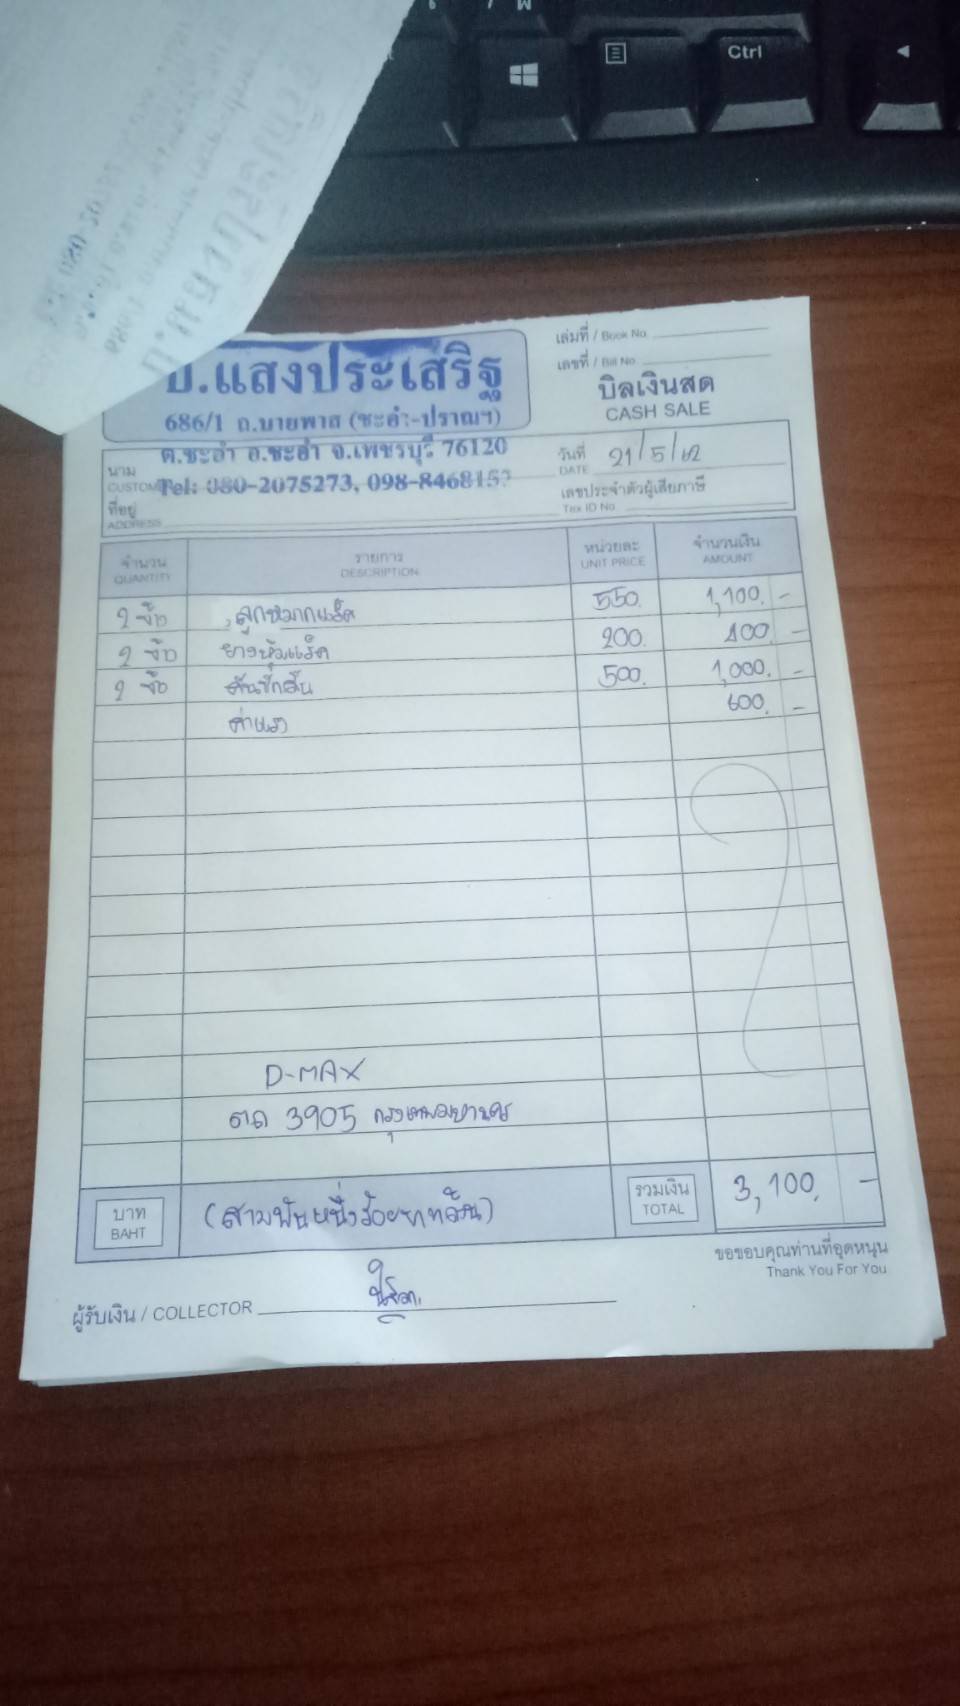 Ctrl
บ.แสงประเสริฐ
686/1 ถ.นายพาส (ชะอำ-ปราณฯ)
ต.ชะอำ อ.ชะอำ จ.เพชรบุรี 76120
Tel: 080-2075273, 098-8468152
เล่มที่ / Book No.
เลขที่ / Bill No.
บิลเงินสด
CASH SALE
นาม
CUSTOM
ที่อยู่
ADDRESS
วันที่ 21/5/62
DATE
เลขประจำตัวผู้เสียภาษี
Tax ID No.
จำนวน รายการ หน่วยละ จำนวนเงิน
QUANTITY DESCRIPTION UNIT PRICE AMOUNT
2 ชิ้น ลูกหมากแร็ค 550. 1,100. -
2 ชิ้น ยางหุ้มแร็ค 200. 400. -
2 ชิ้น คันชักสั้น 500. 1,000. -
ค่าแรง 600. -
D-MAX
ตภ 3905 กรุงเทพมหานคร
บาท (สามพันหนึ่งร้อยบาทถ้วน) รวมเงิน 3,100. -
BAHT TOTAL
ขอขอบคุณท่านที่อุดหนุน
Thank You For You
ผู้รับเงิน / COLLECTOR